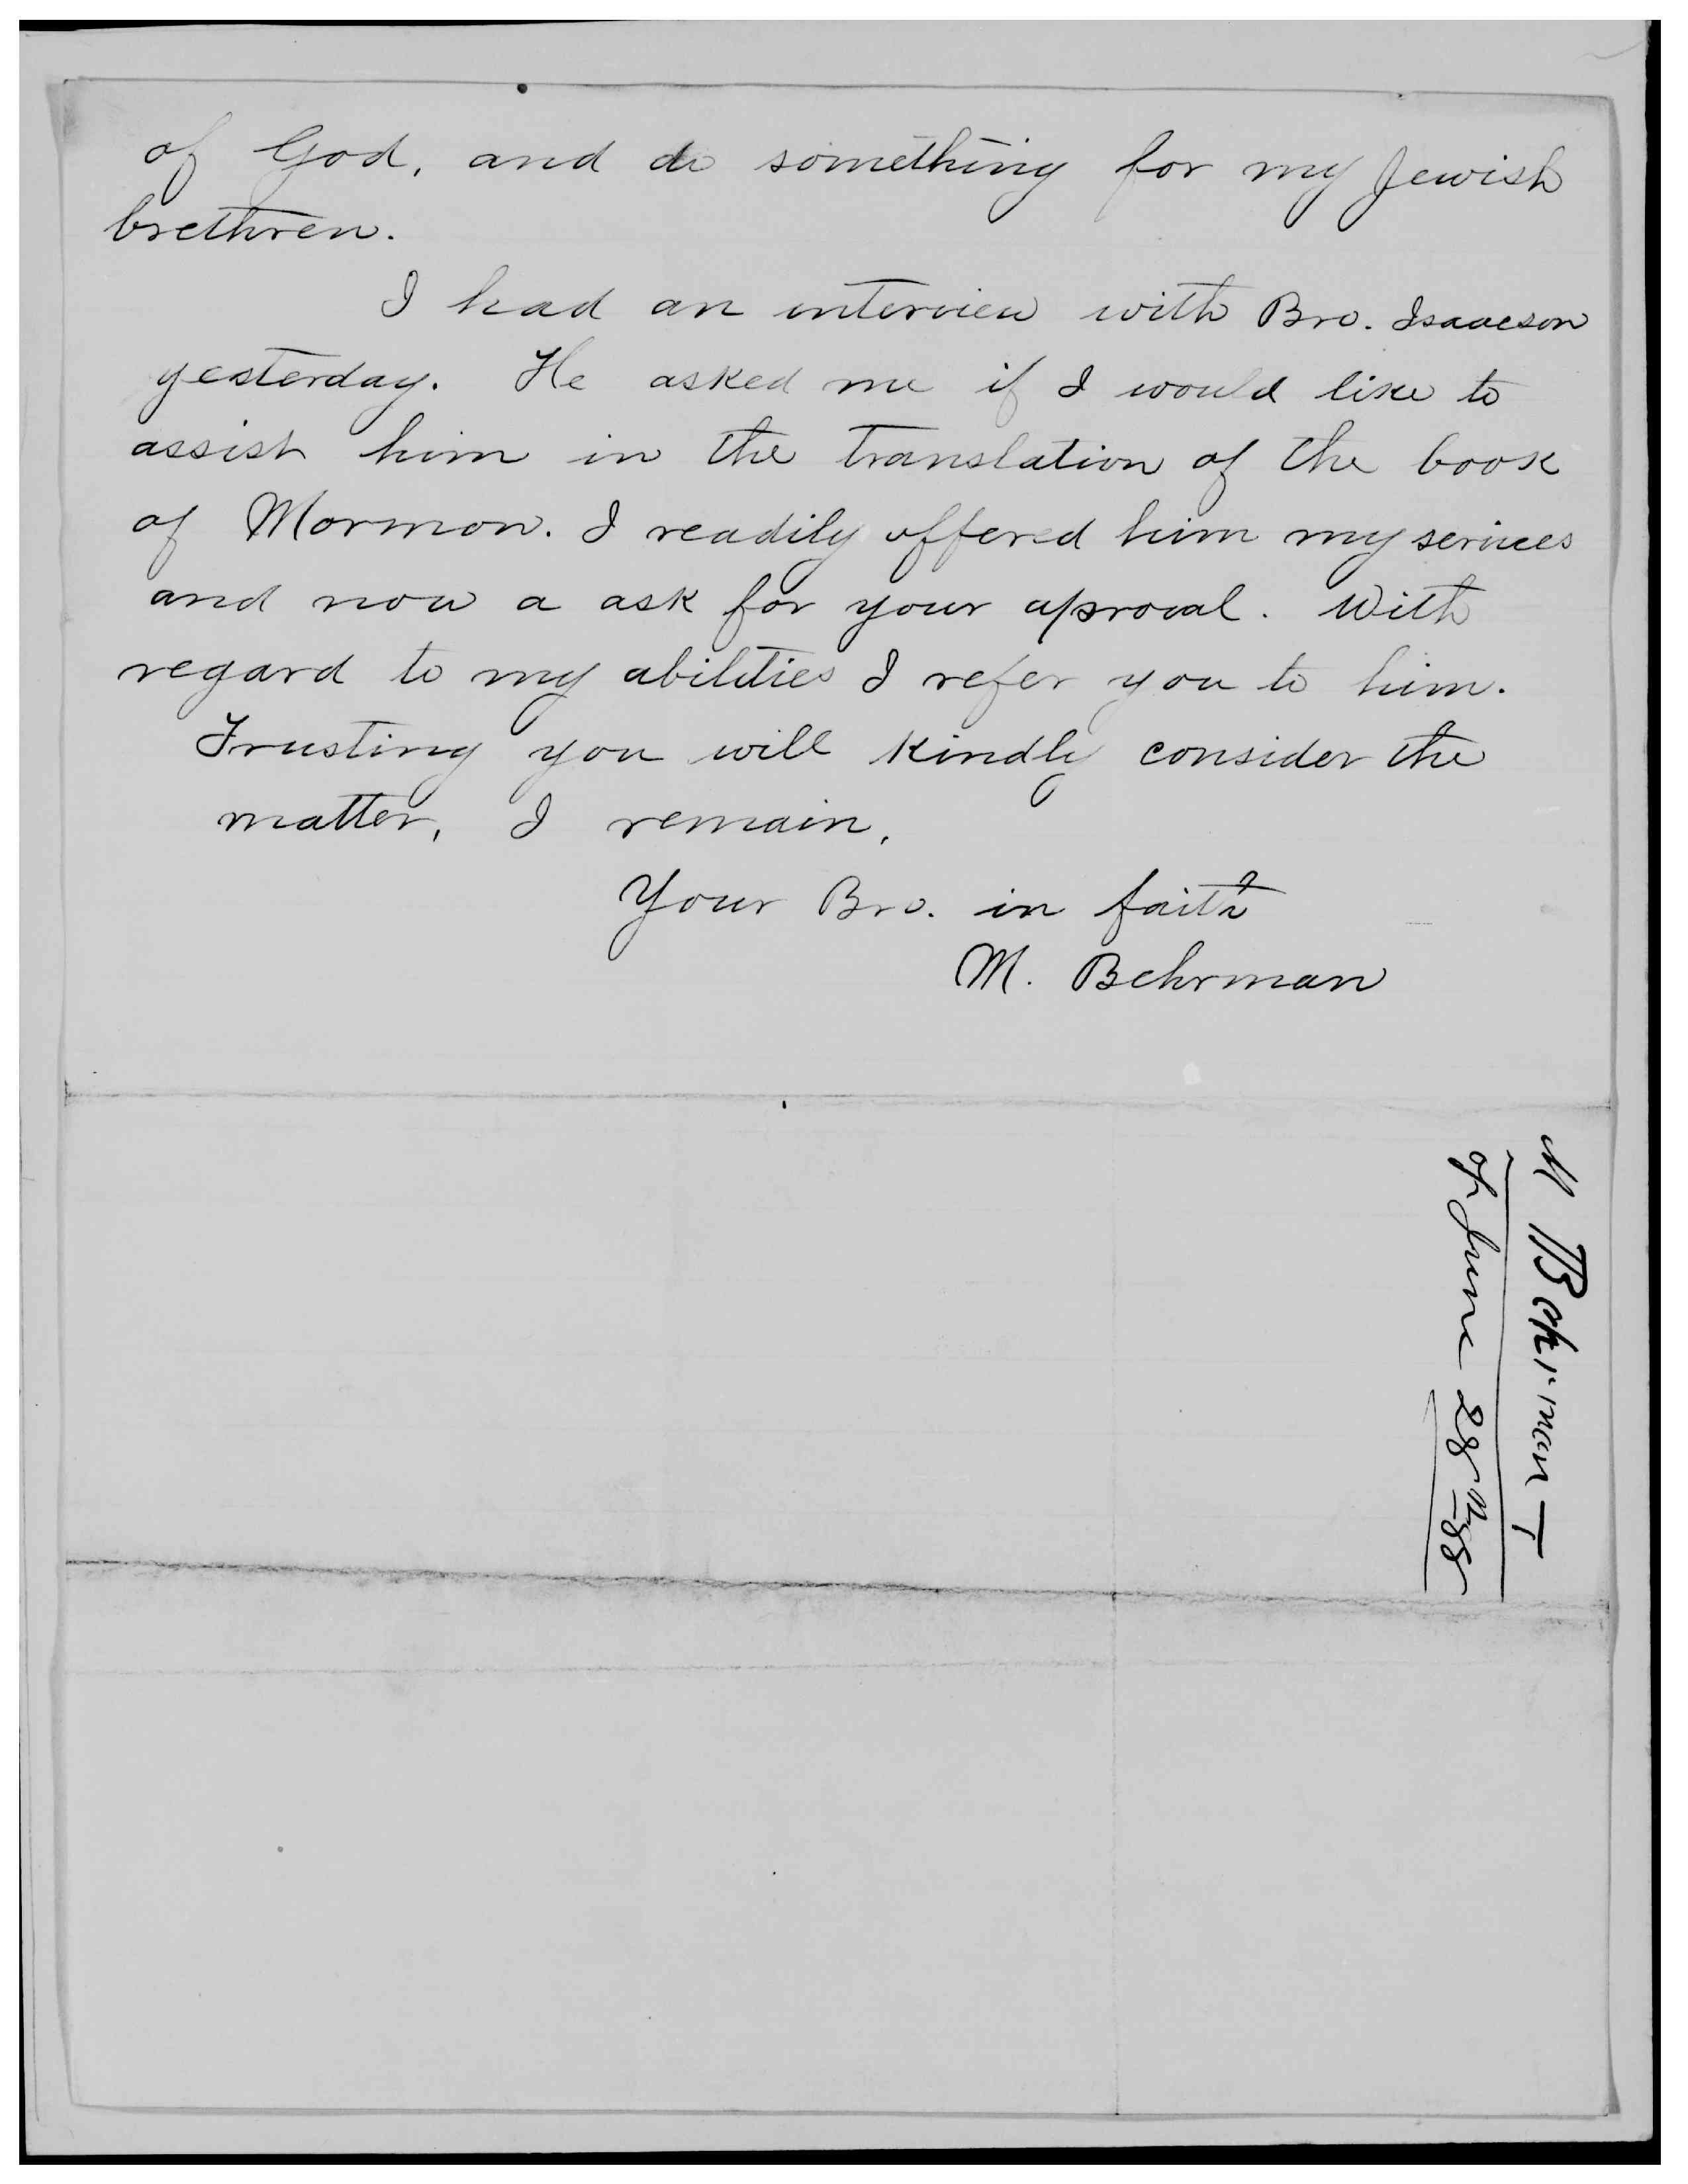 of God, and do something for my Jewish
brethren.
I had an interview with Bro. Isaacson
yesterday. He asked me if I would like to
assist him in the translation of the book
of Mormon. I readily offered him my services
and now a ask for your aproval. With
regard to my abilities I refer you to him.
Trusting you will kindly consider the
matter, I remain,
Your Bro. in faith
M. Behrman
M Behrman
of June 28th 88